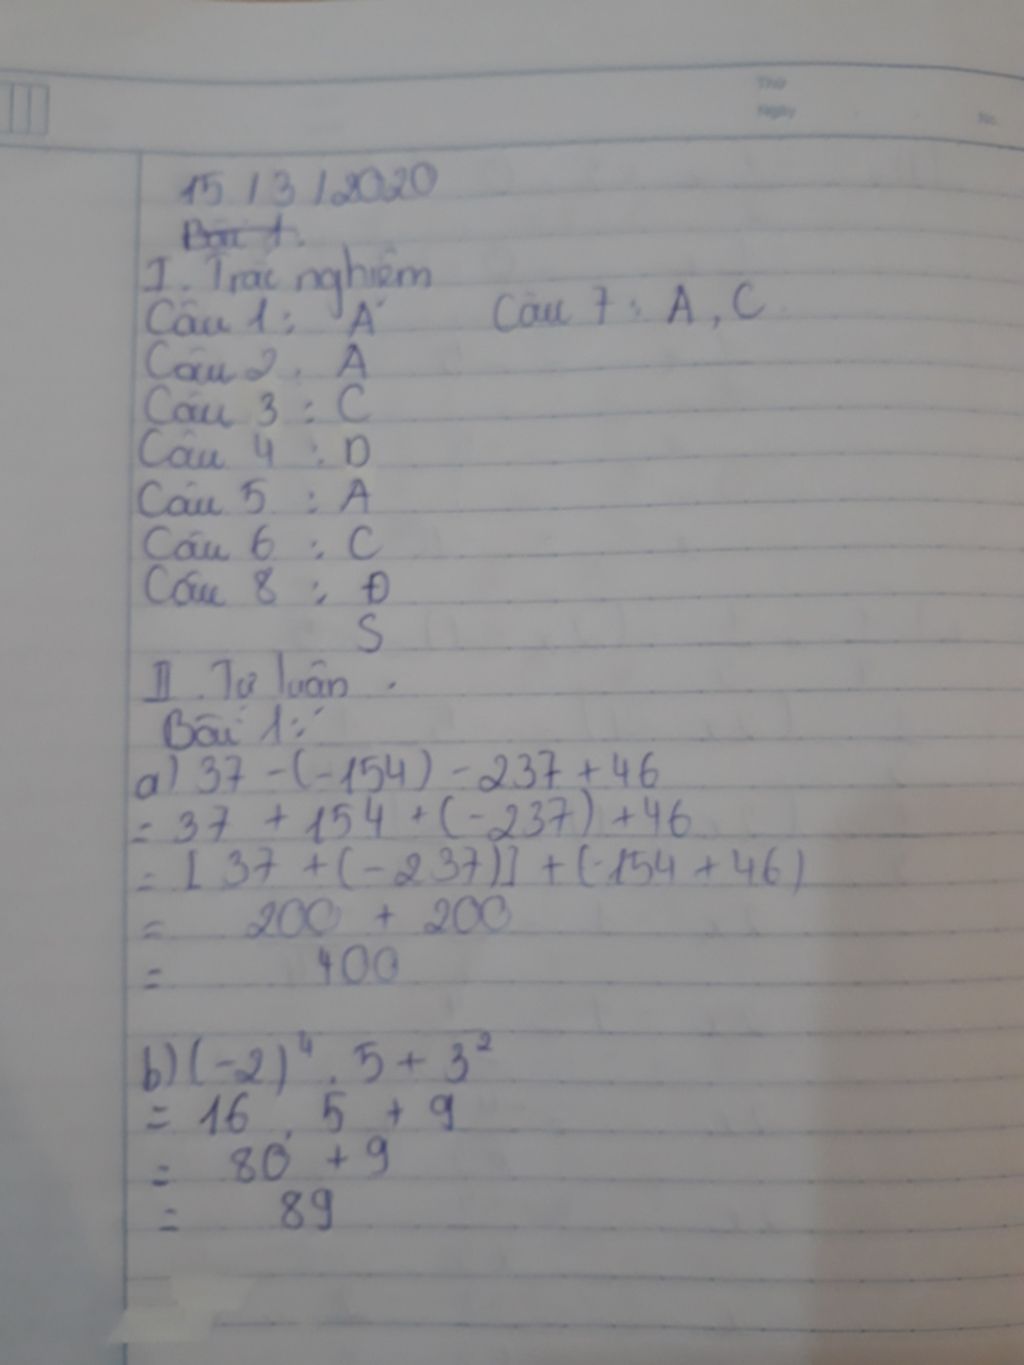 Thứ
Ngày
No.
15/3/2020
Bài 1.
I. Trắc nghiệm
Câu 1: A
Câu 7: A, C
Câu 2. A
Câu 3: C
Câu 4: D
Câu 5: A
Câu 6: C
Câu 8: Đ
S
II. Tự luận.
Bài 1:
a) 37 - (-154) - 237 + 46
= 37 + 154 + (-237) + 46
= [37 + (-237)] + (-154 + 46)
= 200 + 200
= 400
b) (-2)⁴ . 5 + 3²
= 16 . 5 + 9
= 80 + 9
= 89